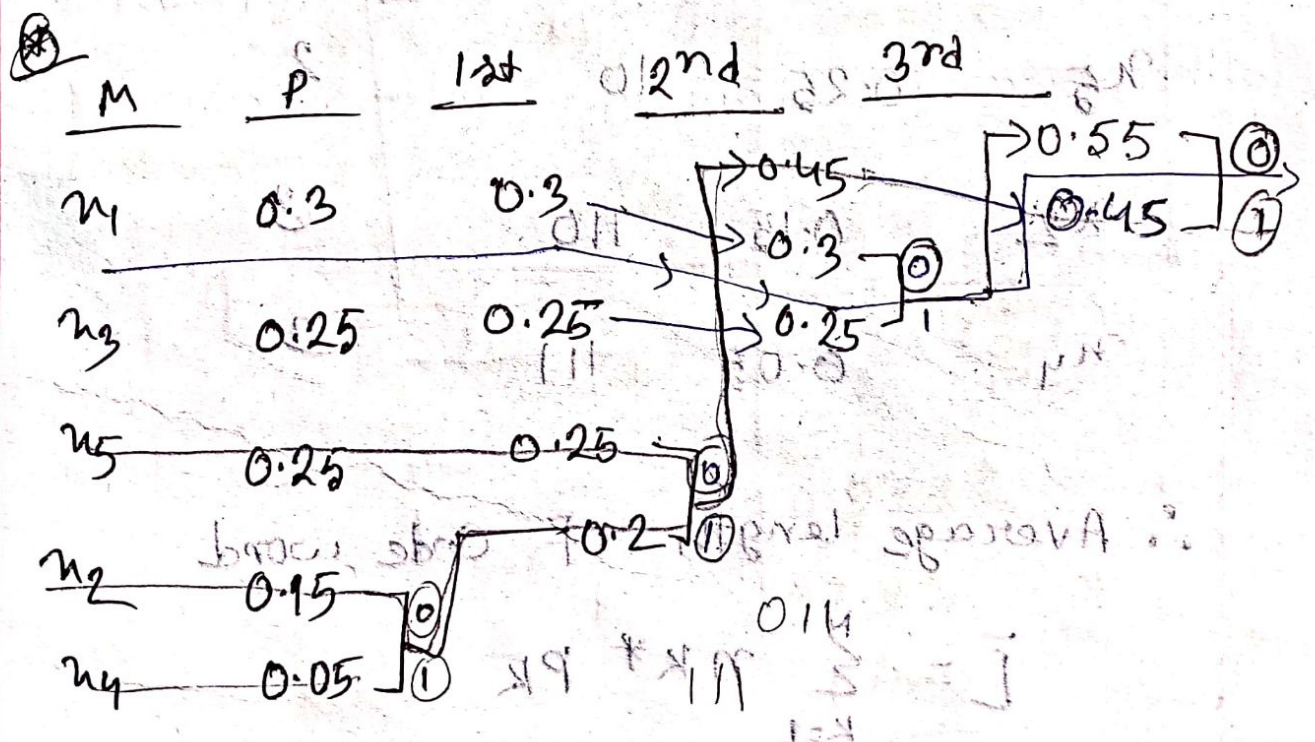 M P 1st 2nd 3rd
0.45 0.55 0
x1 0.3 0.3 0.3 0 0.45 1
x3 0.25 0.25 0.25 1
x5 0.25 0.25 0
0.2 1
x2 0.15 0
x4 0.05 1